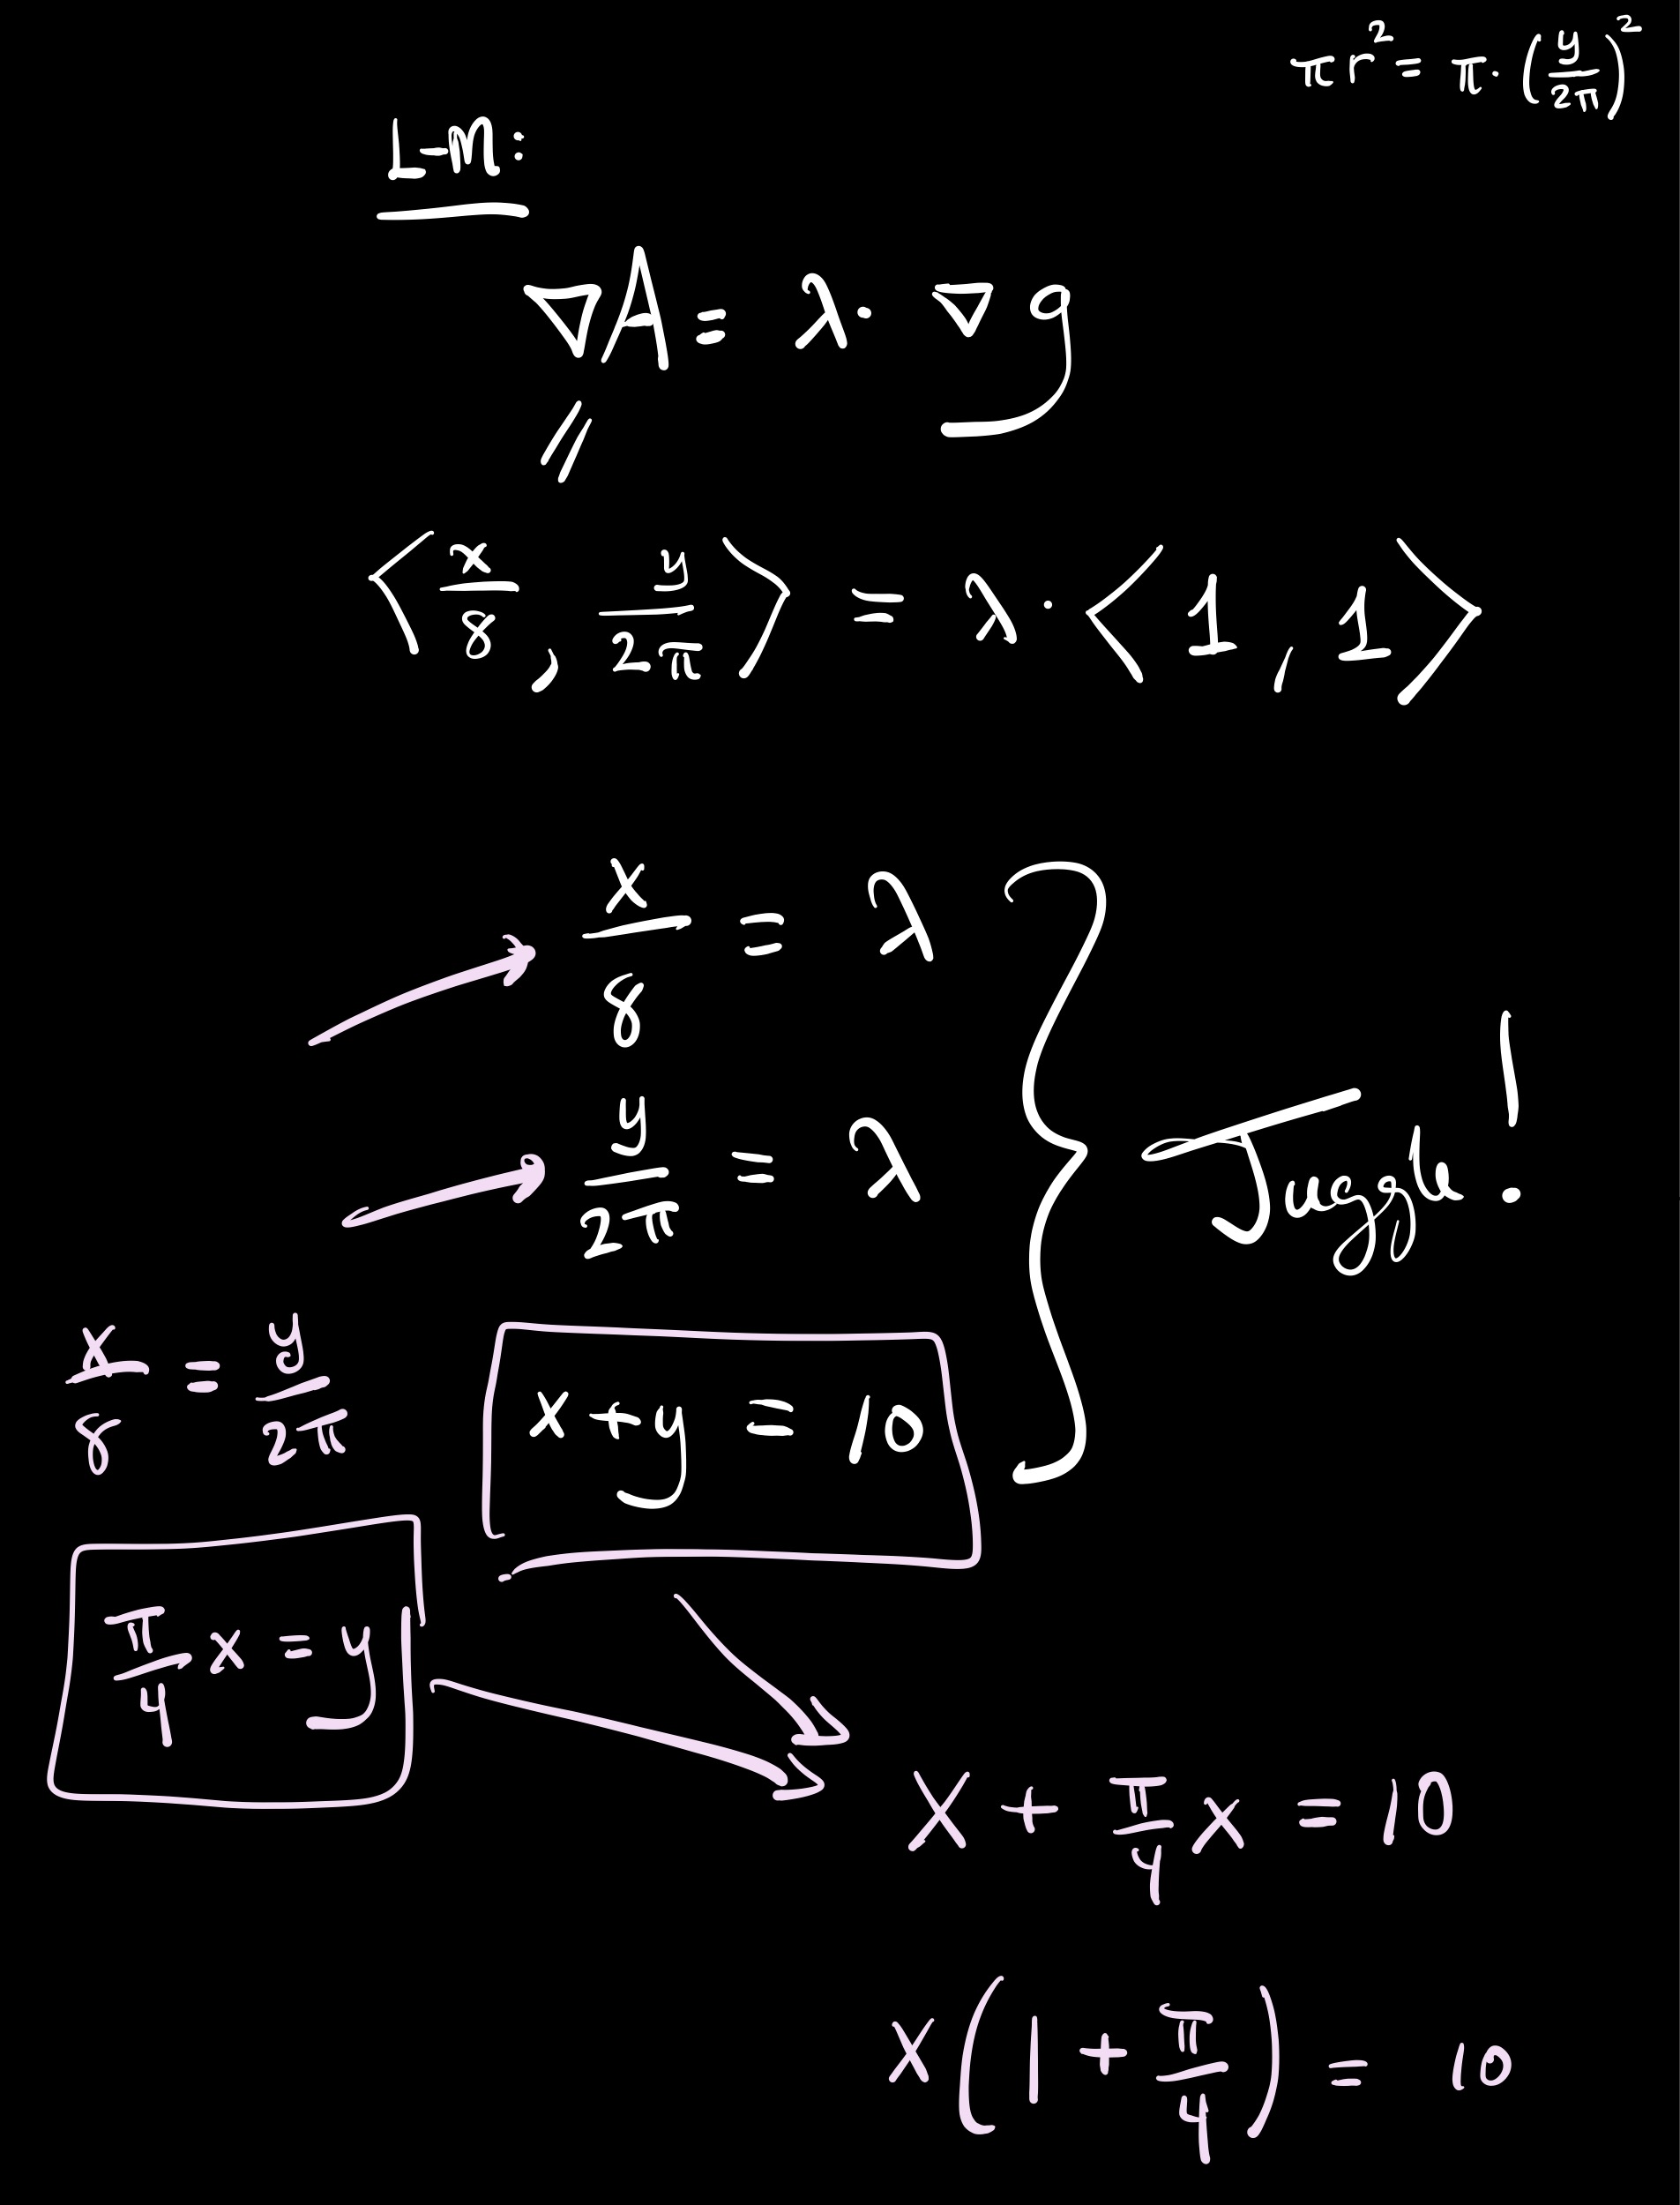 πr² = π·(y/2π)²
L-M:
∇A = λ·∇g
〃
⟨x/8, y/2π⟩ = λ·⟨1, 1⟩
x/8 = λ
y/2π = λ
Juggle!
x/8 = y/2π
x+y = 10
π/4 x = y
x + π/4 x = 10
x(1 + π/4) = 10